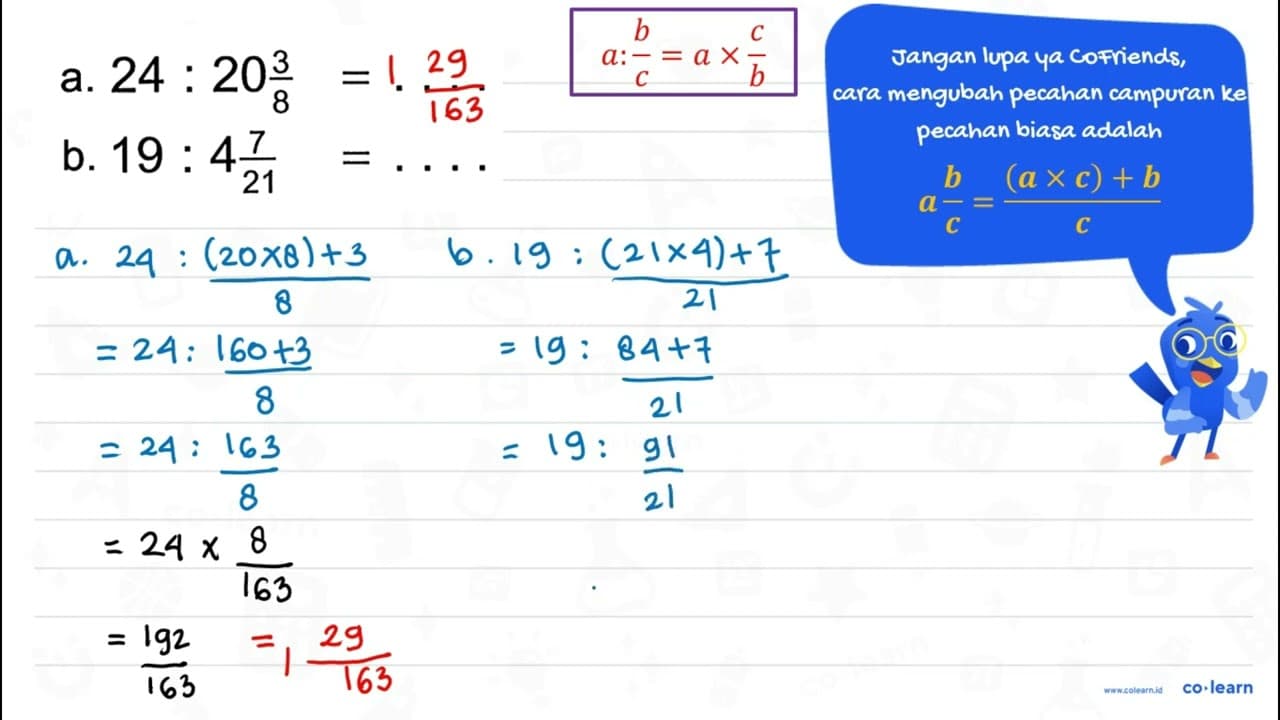 a. 24 : 20 3/8 = 1 29/163
b. 19 : 4 7/21 = . . . .
a : b/c = a × c/b
Jangan lupa ya CoFriends,
cara mengubah pecahan campuran ke
pecahan biasa adalah
a b/c = (a × c) + b / c
a. 24 : (20×8)+3 / 8
= 24 : 160+3 / 8
= 24 : 163/8
= 24 × 8/163
= 192/163 = 1 29/163
b. 19 : (21×4)+7 / 21
= 19 : 84+7 / 21
= 19 : 91/21
www.colearn.id co·learn